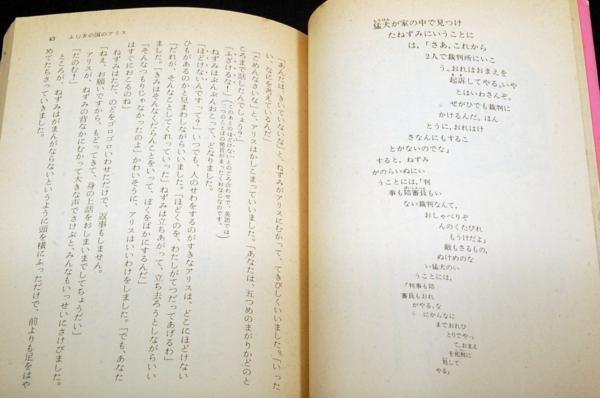 猛犬が家の中で見つけ
たねずみにいうことに
は、「さあ、これから
2人で裁判所にいこ
う。おれはおまえを
起訴してやる。いや
とはいわさんぞ。
ぜがひでも裁判に
かけるんだ。ほん
とうに、おれはけ
さなんにもするこ
とがないのでな」
すると、ねずみ
がのらいぬにい
うことには、「判
事も陪審員もい
ない裁判なんて、
おしゃべりぞ
んのくたびれ
もうけだよ」
敵もさるもの、
ぬけめのな
い猛犬のい
うことには、
「判事も陪
審員もおれ
がやる。な
にかんなに
までおれひ
とりでやっ
て、おまえ
を死刑に
処して
やる」
ふしぎの国のアリス
43
「あんたは、きいていないな」と、ねずみがアリスにむかって、てきびしくいいました。「いった
い、なにを考えているんだ」
「ごめんなさいな」と、アリスはかしこまっていいました。「あなたは、五つめのまがりかどのと
ころまで話したんでしょう」
「ふざけるな！」
ねずみはぷんぷんおこって、どなりました。
「ほどけないんですって！」いつでも、人のせわをするのがすきなアリスは、どこにほどけない
ひもがあるのかと見まわしながらいいました。「ほどくのを、わたしがてつだってあげるわ」
「だれが、そんなことしてくれっていった」ねずみは立ちあがって、立ち去ろうとしながらいい
ました。「きみはそんなくだらんことをいって、ぼくをばかにするんだ」
「そんなつもりじゃなかったのよ」かわいそうに、アリスはいいわけをしました。「でも、あなた
はすぐにおこるのね」
ねずみはただ、のどをゴロゴロいわせただけで、返事もしません。
「ねえ、お願いですから、もどってきて、身の上話をおしまいまでしてちょうだい」
アリスが、ねずみの背なかにむかって大きな声でさけぶと、みんなもいっせいにさけびました。
「たのむ！」
ところが、ねずみはがまんがならないというように頭を横にふっただけで、前よりも足をはや
めてたちさっていきました。